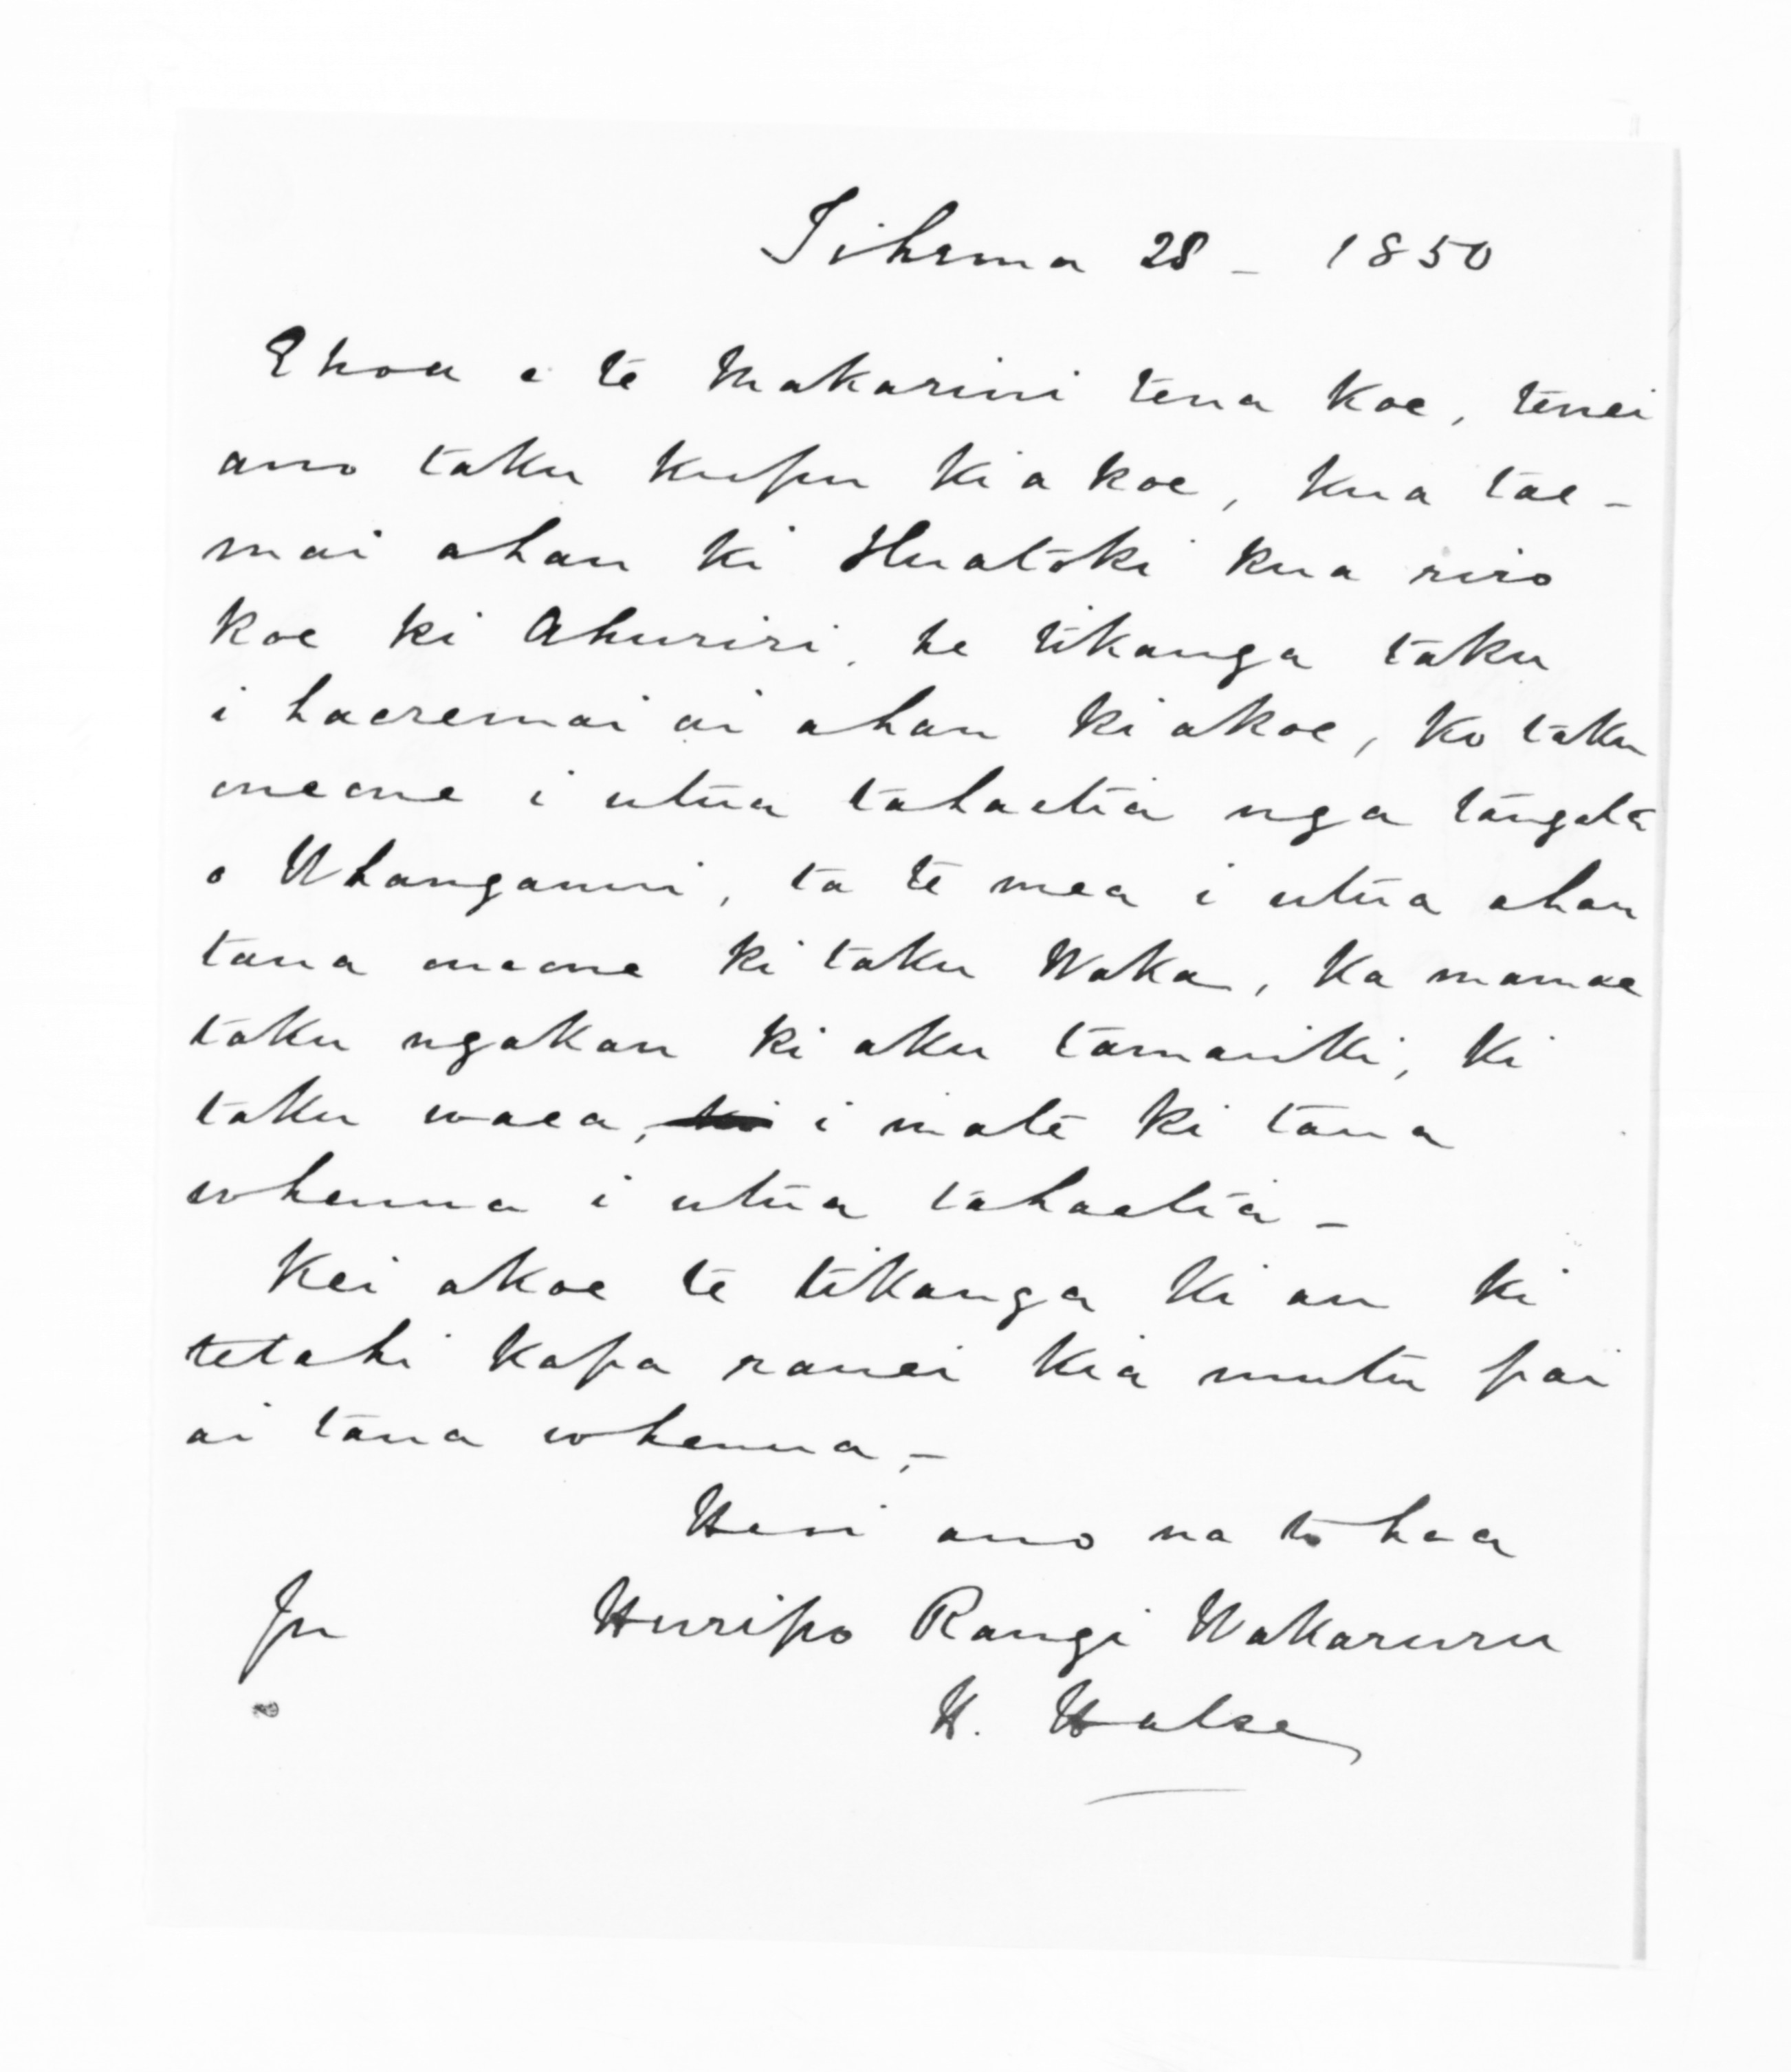 Tihema 28 - 1850
E hoa e te Makarini tena koe, tenei
ano taku kupu ki a koe, kua tae-
mai ahau ki Huatoki kua riro
koe ki Ahuriri, he tikanga taku
i haeremai ai ahau ki akoe, ko taku
oneone i utua tahaetia nga tangata
o Whanganui, ta te mea i utua ahau
tana oneone ki taku Waka, ka mamae
taku ngakau ki aku tamariki, ki
taku waea, i mate ki tana
whenua i utua tahaetia -
Kei akoe te tikanga ki au ki
tetahi kapa ranei kia mutu pai
ai tana whenua, -
Heoi ano na to hoa
Huripo Rangi Wakaruru
H. Halse